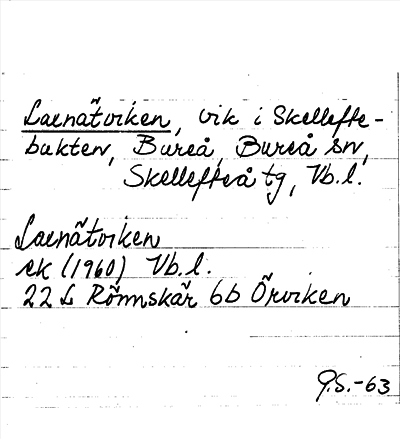 Laenätviken, vik i Skellefte-
bukten, Bureå, Bureå sn,
Skellefteå tg, Vb.l.
Laenätviken
ek (1960) Vb.l.
22 L Rönnskär 6b Örviken
G.S.-63